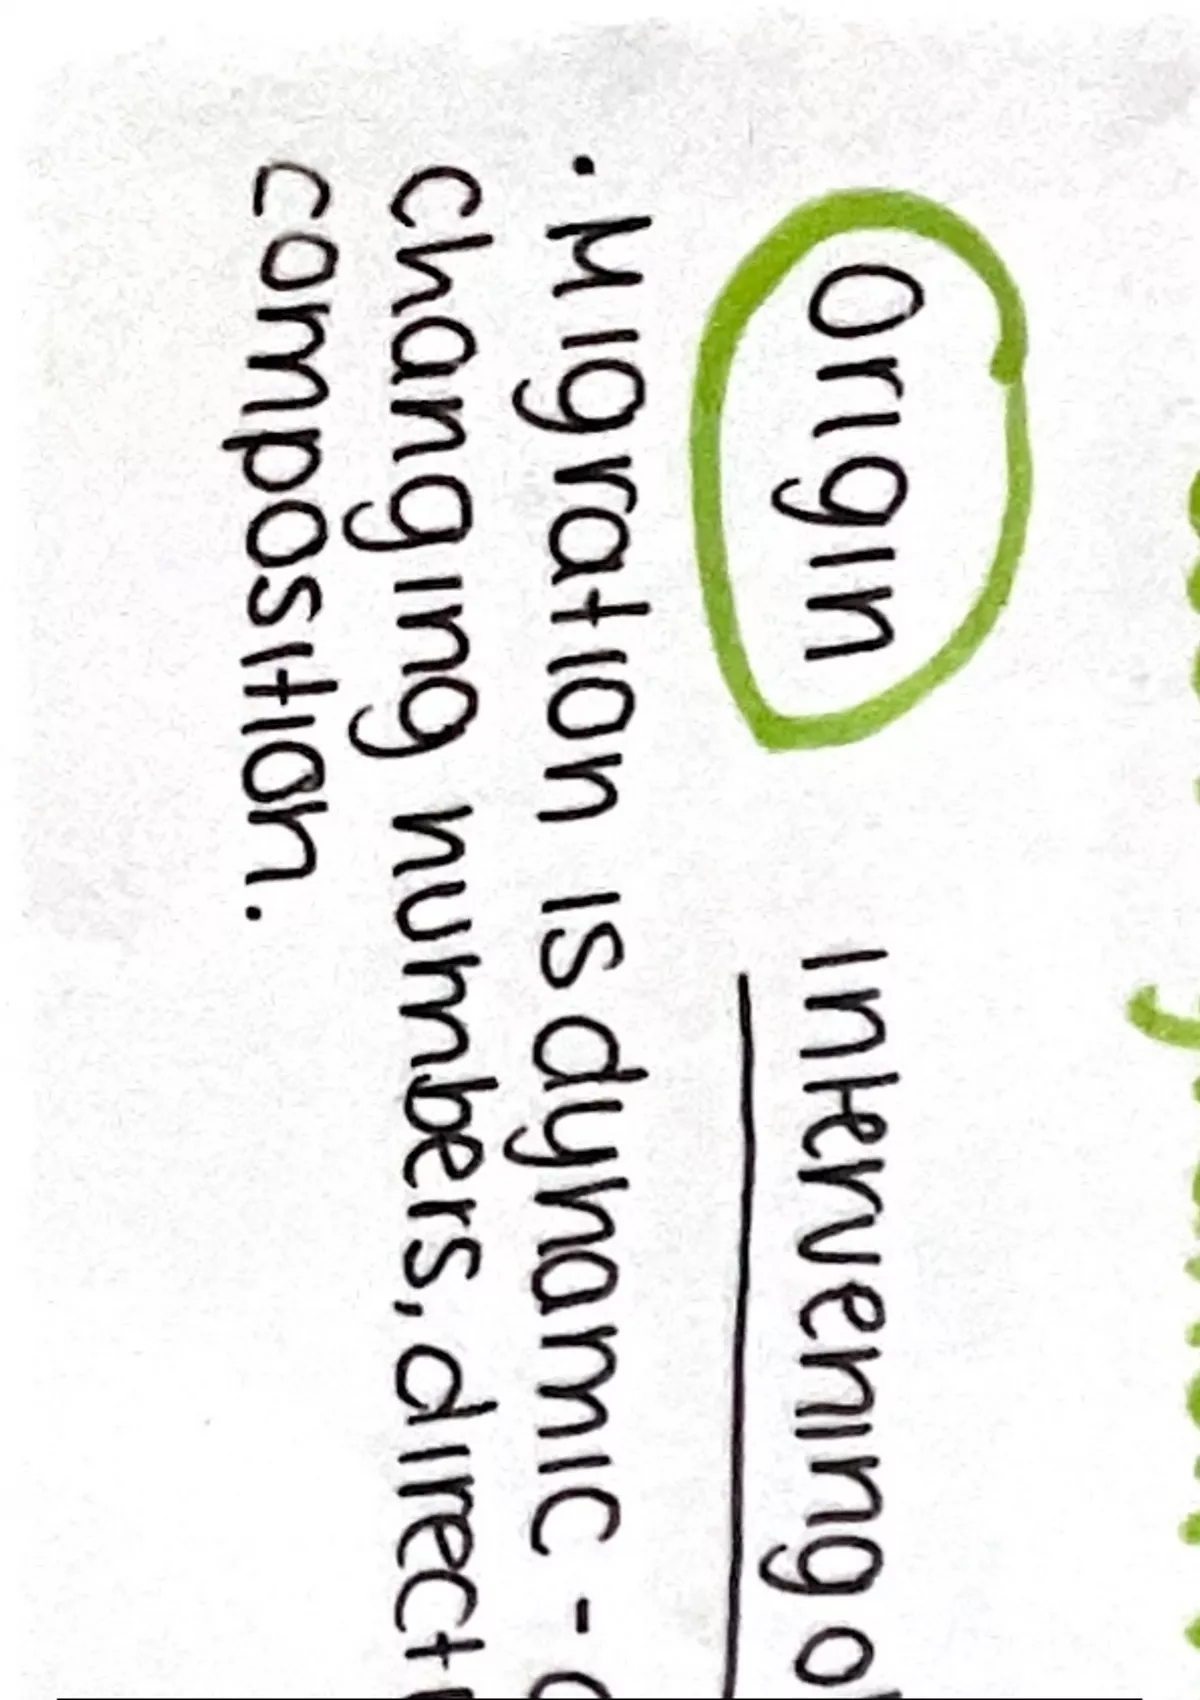 Origin Intervening
• Migration is dynamic -
changing numbers, direct
composition.